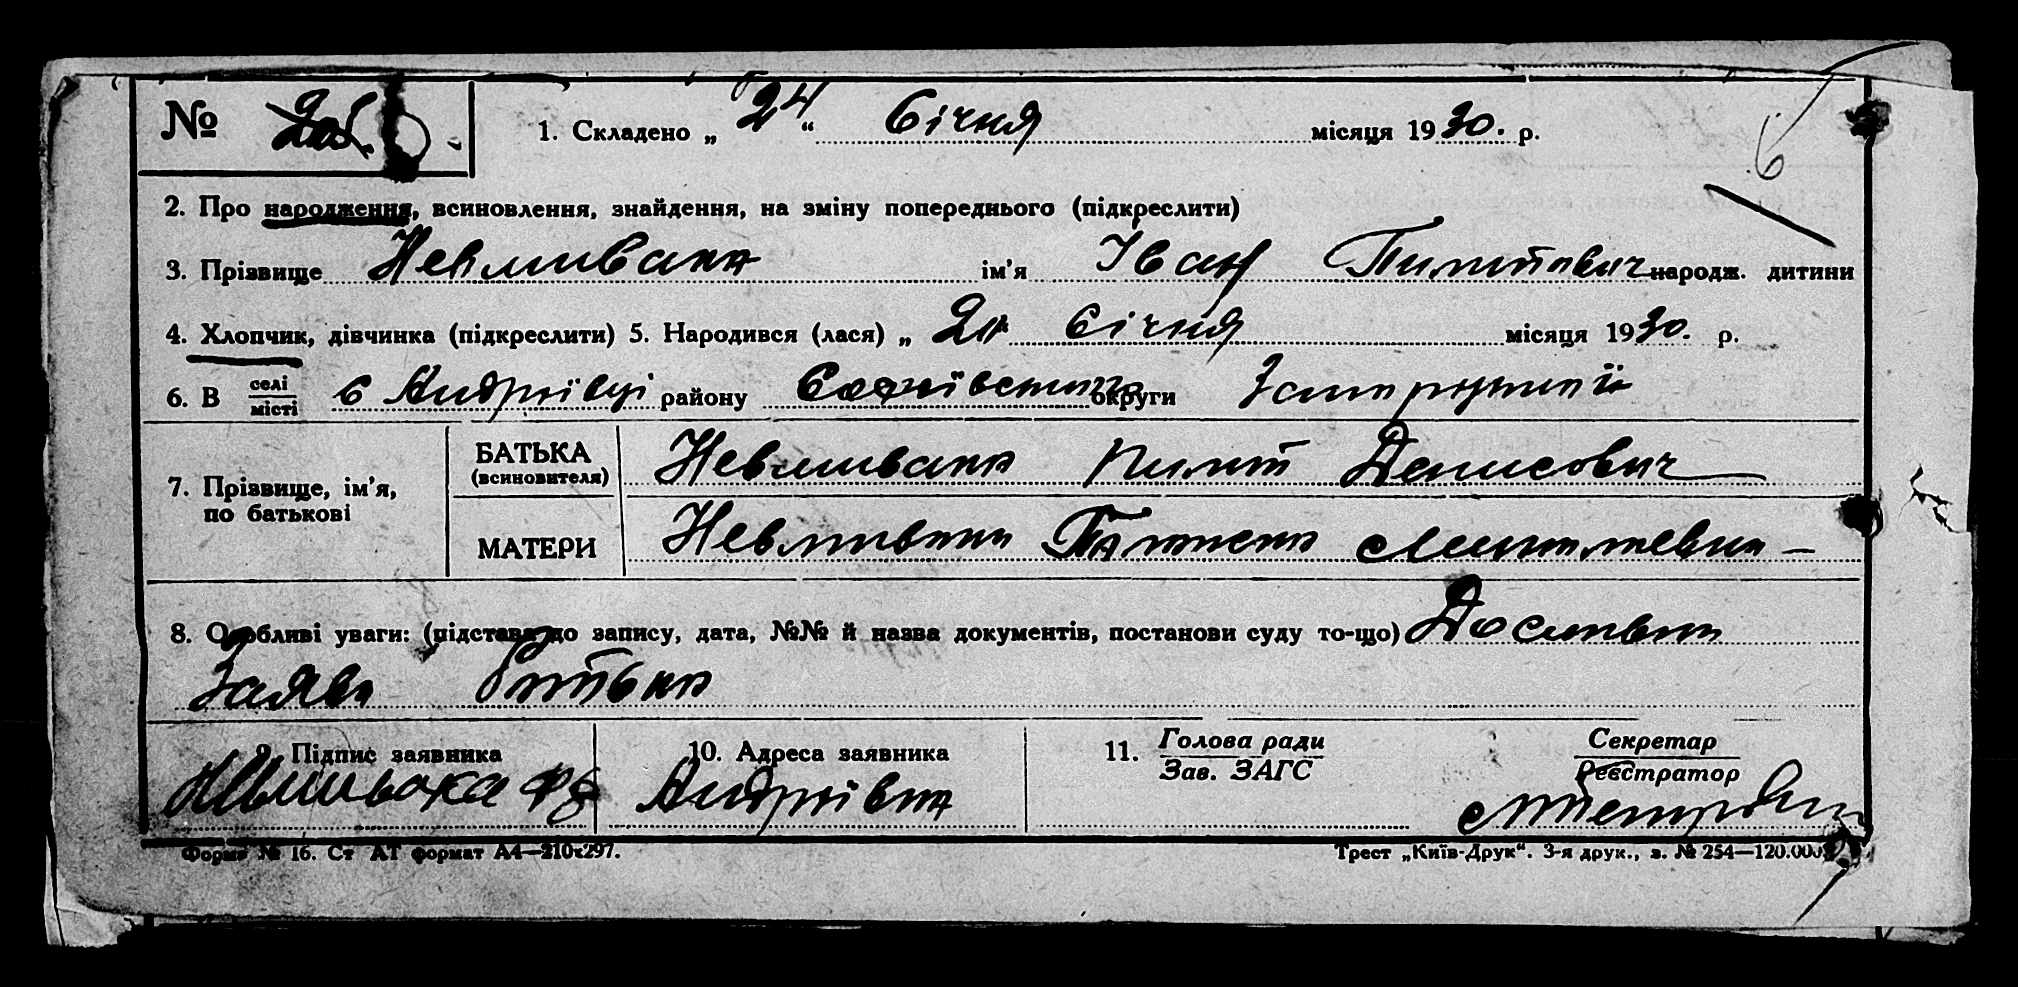 № 6.
1. Складено „ 24 “ Січня місяця 1930. р.
6
2. Про народження, всиновлення, знайдення, на зміну попереднього (підкреслити)
3. Прізвище Невмивака ім’я Іван Пилитович народж. дитини
4. Хлопчик, дівчинка (підкреслити) 5. Народився (лася) „ Січня місяця 1930. р.
6. В селі/місті с Андріївці району Софиївским округи
7. Прізвище, ім’я, по батькові
БАТЬКА (всиновителя) Невмивака Пилит Денисович
МАТЕРИ Невмивака
8. Особливі уваги: (підстава до запису, дата, №№ й назва документів, постанови суду то-що) Дослівна
Заява батька
9. Підпис заявника
10. Адреса заявника
Андріївка
11. Голова ради
Зав. ЗАГС
Секретар
Реєстратор
Форма № 16. Ст АТ формат А4—210х297.
Трест „Київ-Друк“. 3-я друк., з. № 254—120.000